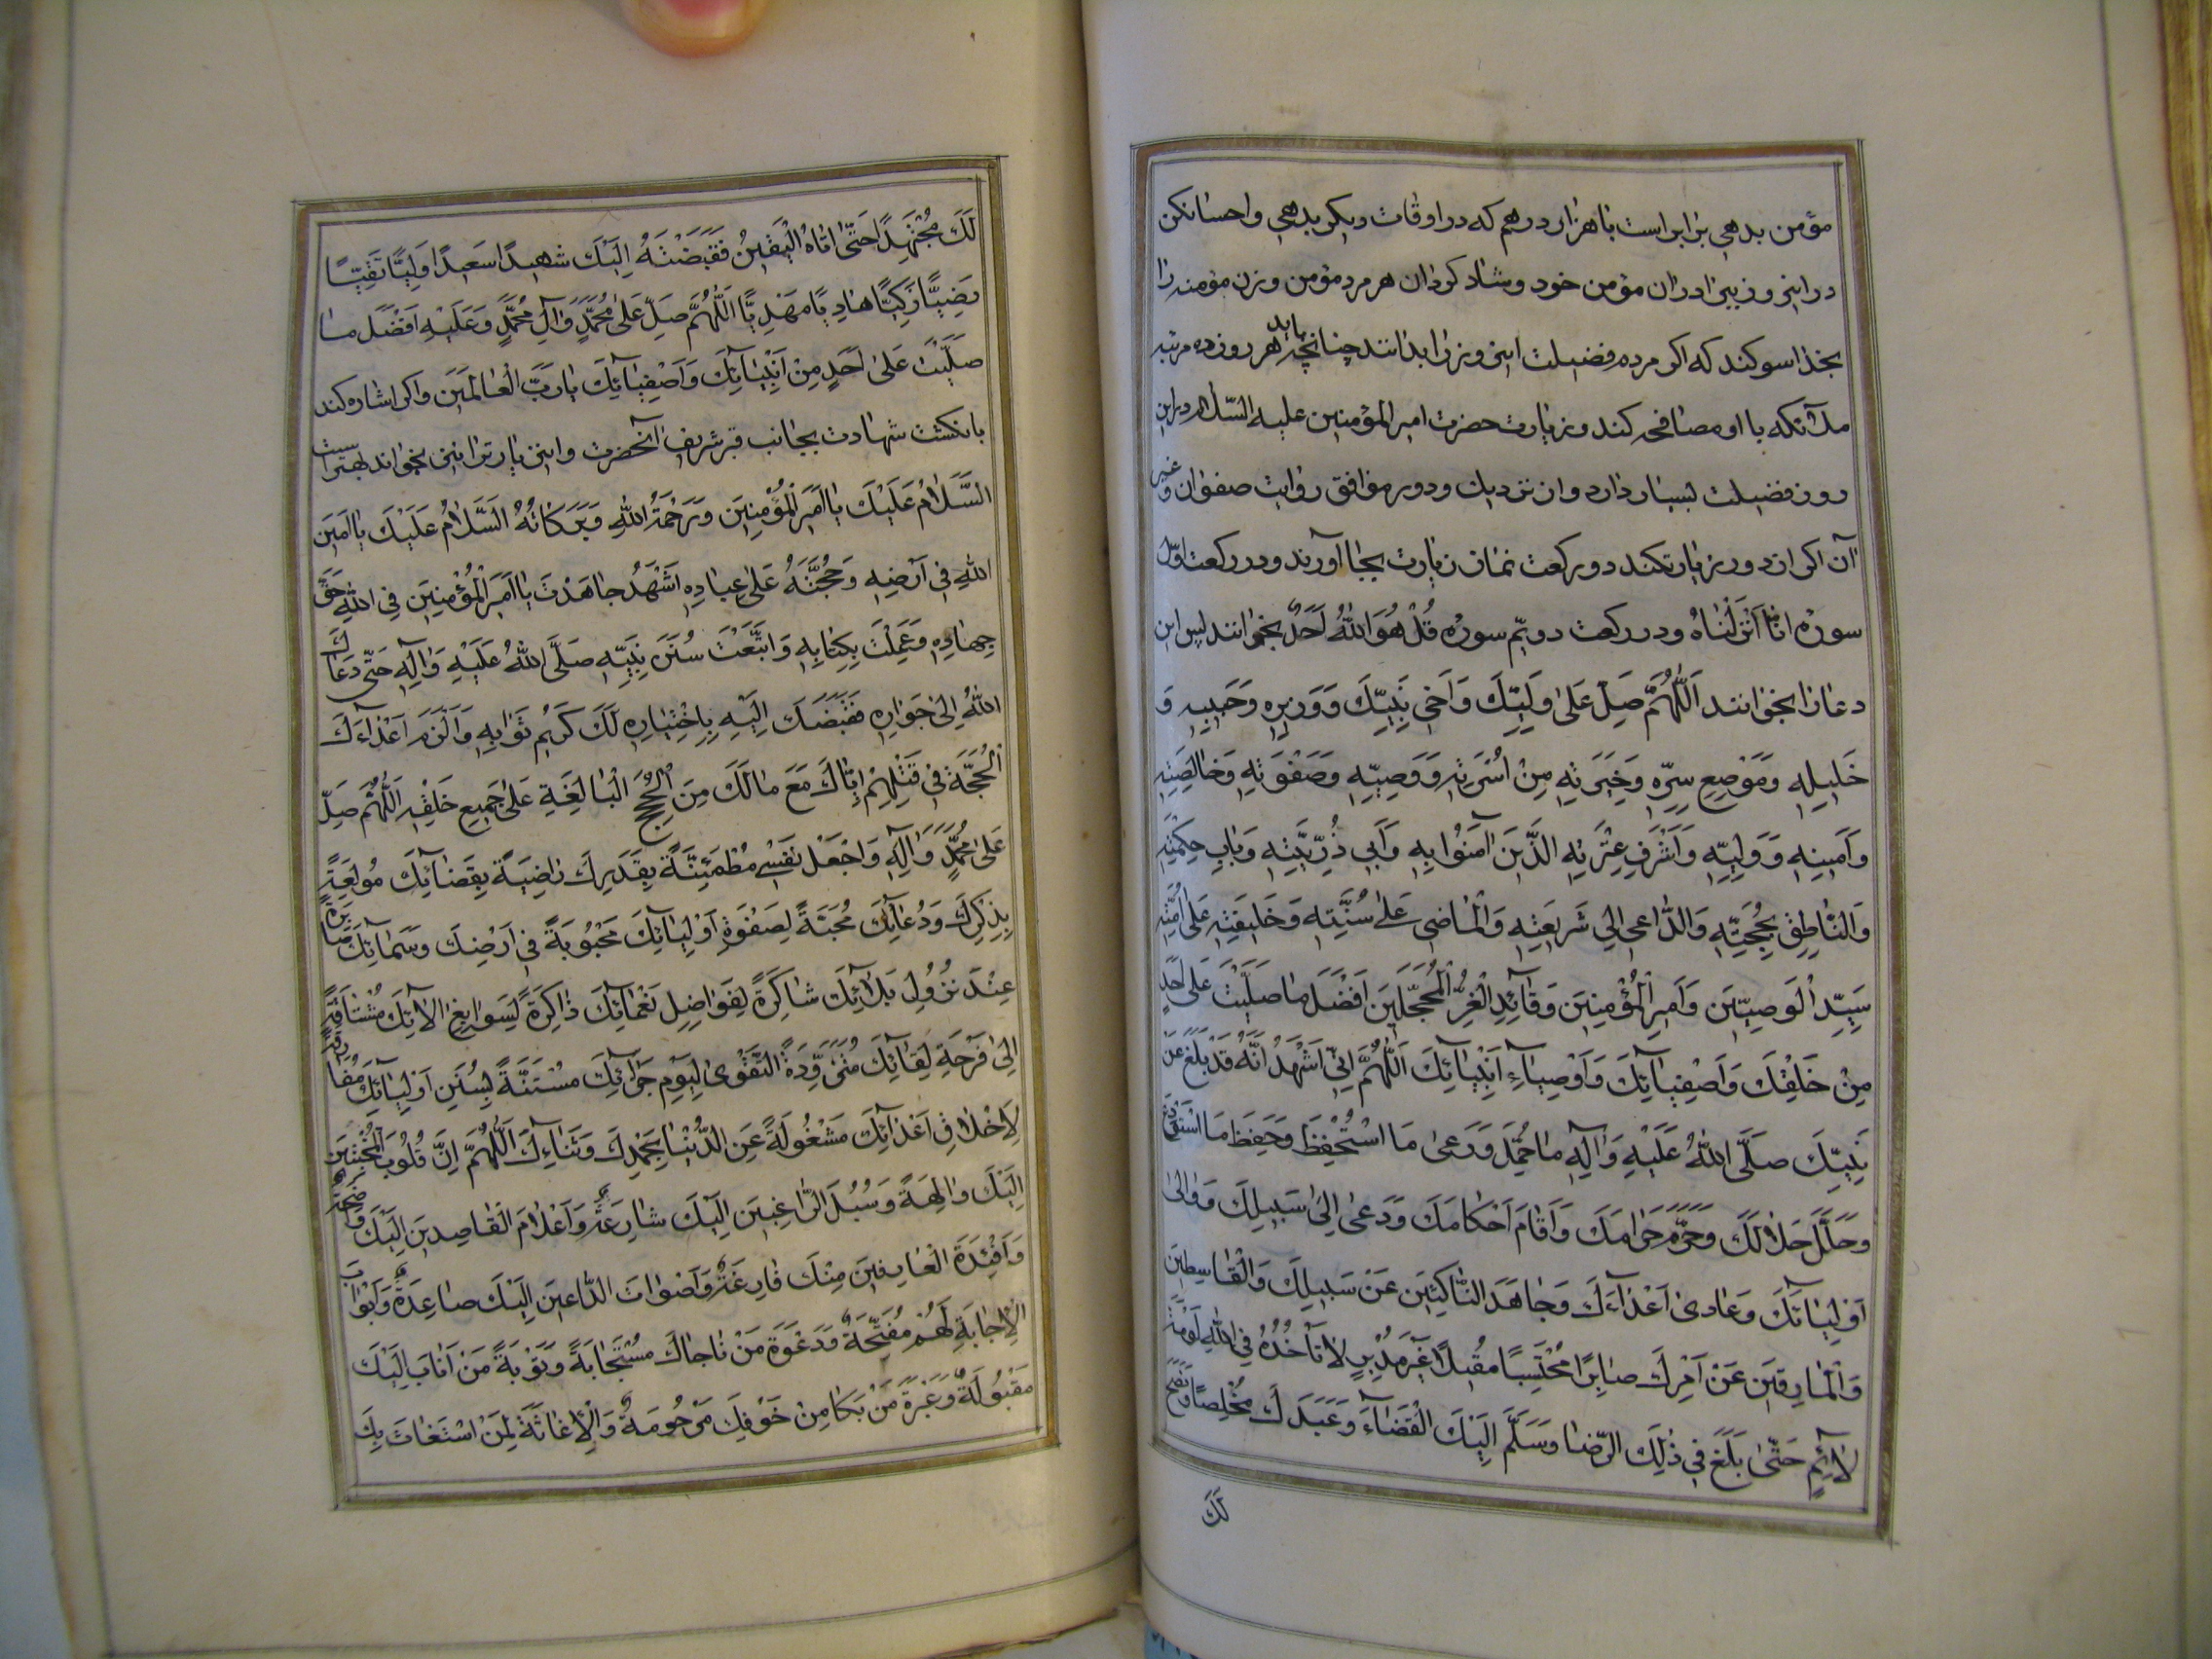 مؤمن بدهی برابر است با هزار درهم که در اوقات دیکر بدهی و احسان کن
در این روز ببرادران مؤمن خود و شاد کردان هر مرد مؤمن و زن مؤمنه را
بخدا سوکند که اکر مردم فضیلت این روز را بدانند چنانچه باید هر روز ده مرتبه
ملائکه با او مصافحه کنند و زیارت حضرت امیر المؤمنین علیه السّلام در این
روز فضیلت بسیار دارد و از نزدیک و دور موافق روایت صفوان و غیر
آن اکر از دور زیارت کند دو رکعت نماز زیارت بجا آورند و در رکعت اوّل
سورهٔ انّا اَنْزَلْناهُ و در رکعت دویّم سورهٔ قُلْ هُوَ اللهُ اَحَدٌ بخوانند پس این
دعا را بخوانند اَللّٰهُمَّ صَلِّ عَلىٰ وَلِيِّكَ وَاَخي نَبِيِّكَ وَوَزيرِهِ وَحَبيبِهِ وَ
خَليلِهِ وَمَوْضِعِ سِرِّهِ وَخِيَرَتِهِ مِنْ اُسْرَتِهِ وَوَصِيِّهِ وَصَفْوَتِهِ وَخالِصَتِهِ
وَاَمينِهِ وَوَلِيِّهِ وَاَشْرَفِ عِتْرَتِهِ الَّذينَ آمَنُوا بِهِ وَاَبي ذُرِّيَّتِهِ وَبابِ حِكْمَتِهِ
وَالنّاطِقِ بِحُجَّتِهِ وَالدّاعي اِلي شَريعَتِهِ وَالْماضي عَلىٰ سُنَّتِهِ وَخَليفَتِهِ عَلىٰ اُمَّتِهِ
سَيِّدِ الْوَصِيّينَ وَاَميرِ الْمُؤْمِنينَ وَقآئِدِ الْغُرِّ الْمُحَجَّلينَ اَفْضَلَ ما صَلَّيْتَ عَلىٰ اَحَدٍ
مِنْ خَلْقِكَ وَاَصْفِيآئِكَ وَاَوْصِيآءِ اَنْبِيآئِكَ اَللّٰهُمَّ اِنّي اَشْهَدُ اَنَّهُ قَدْ بَلَّغَ عَنْ
نَبِيِّكَ صَلَّى اللهُ عَلَيْهِ وَآلِهِ ما حُمِّلَ وَرَعىٰ مَا اسْتُحْفِظَ وَحَفِظَ مَا اسْتُودِعَ
وَحَلَّلَ حَلالَكَ وَحَرَّمَ حَرامَكَ وَاَقامَ اَحْكامَكَ وَدَعىٰ اِلىٰ سَبيلِكَ وَوالىٰ
اَوْلِيآئَكَ وَعادىٰ اَعْدآءَكَ وَجاهَدَ النّاكِثينَ عَنْ سَبيلِكَ وَالْقاسِطينَ
وَالْمارِقينَ عَنْ اَمْرِكَ صابِرًا مُحْتَسِبًا مُقْبِلًا غَيْرَ مُدْبِرٍ لا تَأْخُذُهُ فِي اللهِ لَوْمَةُ
لآئِمٍ حَتّىٰ بَلَغَ في ذٰلِكَ الرِّضا وَسَلَّمَ اِلَيْكَ الْقَضآءَ وَعَبَدَكَ مُخْلِصًا وَنَصَحَ
لَكَ
لَكَ مُجْتَهِدًا حَتّىٰ اَتاهُ الْيَقينُ فَقَبَضْتَهُ اِلَيْكَ شَهيدًا سَعيدًا وَلِيًّا تَقِيًّا
رَضِيًّا زَكِيًّا هادِيًا مَهْدِيًّا اَللّٰهُمَّ صَلِّ عَلىٰ مُحَمَّدٍ وَآلِ مُحَمَّدٍ وَعَلَيْهِ اَفْضَلَ ما
صَلَّيْتَ عَلىٰ اَحَدٍ مِنْ اَنْبِيآئِكَ وَاَصْفِيآئِكَ يا رَبَّ الْعالَمينَ و اکر اشاره کند
بانکشت شهادت بجانب قبر شریف آنحضرت و این زیارت را نیز بخواند بهتر است
اَلسَّلامُ عَلَيْكَ يا اَميرَ الْمُؤْمِنينَ وَرَحْمَةُ اللهِ وَبَرَكاتُهُ اَلسَّلامُ عَلَيْكَ يا اَمينَ
اللهِ في اَرْضِهِ وَحُجَّتَهُ عَلىٰ عِبادِهِ اَشْهَدُ جاهَدْتَ يا اَميرَ الْمُؤْمِنينَ فِي اللهِ حَقَّ
جِهادِهِ وَعَمِلْتَ بِكِتابِهِ وَاتَّبَعْتَ سُنَنَ نَبِيِّهِ صَلَّى اللهُ عَلَيْهِ وَآلِهِ حَتّىٰ دَعاكَ
اللهُ اِلىٰ جِوارِهِ فَقَبَضَكَ اِلَيْهِ بِاِخْتِيارِهِ لَكَ كَريمَ ثَوابِهِ وَاَلْزَمَ اَعْدآءَكَ
الْحُجَّةَ في قَتْلِهِمْ اِيّاكَ مَعَ مالَكَ مِنَ الْحُجَجِ الْبالِغَةِ عَلىٰ جَميعِ خَلْقِهِ اَللّٰهُمَّ صَلِّ
عَلىٰ مُحَمَّدٍ وَآلِهِ وَاجْعَلْ نَفْسي مُطْمَئِنَّةً بِقَدَرِكَ راضِيَةً بِقَضآئِكَ مُولَعَةً
بِذِكْرِكَ وَدُعآئِكَ مُحِبَّةً لِصَفْوَةِ اَوْلِيآئِكَ مَحْبُوبَةً في اَرْضِكَ وَسَمآئِكَ صابِرَةً
عِنْدَ نُزُولِ بَلآئِكَ شاكِرَةً لِفَواضِلِ نَعْمآئِكَ ذاكِرَةً لِسَوابِغِ آلآئِكَ مُشْتاقَةً
اِلىٰ فَرْحَةِ لِقآئِكَ مُتَزَوِّدَةً التَّقْوىٰ لِيَوْمِ جَزآئِكَ مُسْتَنَّةً بِسُنَنِ اَوْلِيآئِكَ مُفارِقَةً
لِاَخْلاقِ اَعْدآئِكَ مَشْغُولَةً عَنِ الدُّنْيا بِحَمْدِكَ وَثَنآءِكَ اَللّٰهُمَّ اِنَّ قُلُوبَ الْمُخْبِتينَ
اِلَيْكَ والِهَةٌ وَسُبُلَ الرّاغِبينَ اِلَيْكَ شارِعَةٌ وَاَعْلامَ الْقاصِدينَ اِلَيْكَ واضِحَةٌ
وَاَفْئِدَةَ الْعارِفينَ مِنْكَ فازِعَةٌ وَاَصْواتَ الدّاعينَ اِلَيْكَ صاعِدَةٌ وَاَبْوابَ
الْاِجابَةِ لَهُمْ مُفَتَّحَةٌ وَدَعْوَةَ مَنْ ناجاكَ مُسْتَجابَةٌ وَتَوْبَةَ مَنْ اَنابَ اِلَيْكَ
مَقْبُولَةٌ وَعَبْرَةَ مَنْ بَكا مِنْ خَوْفِكَ مَرْحُومَةٌ وَالْاِغاثَةَ لِمَنْ اسْتَغاثَ بِكَ